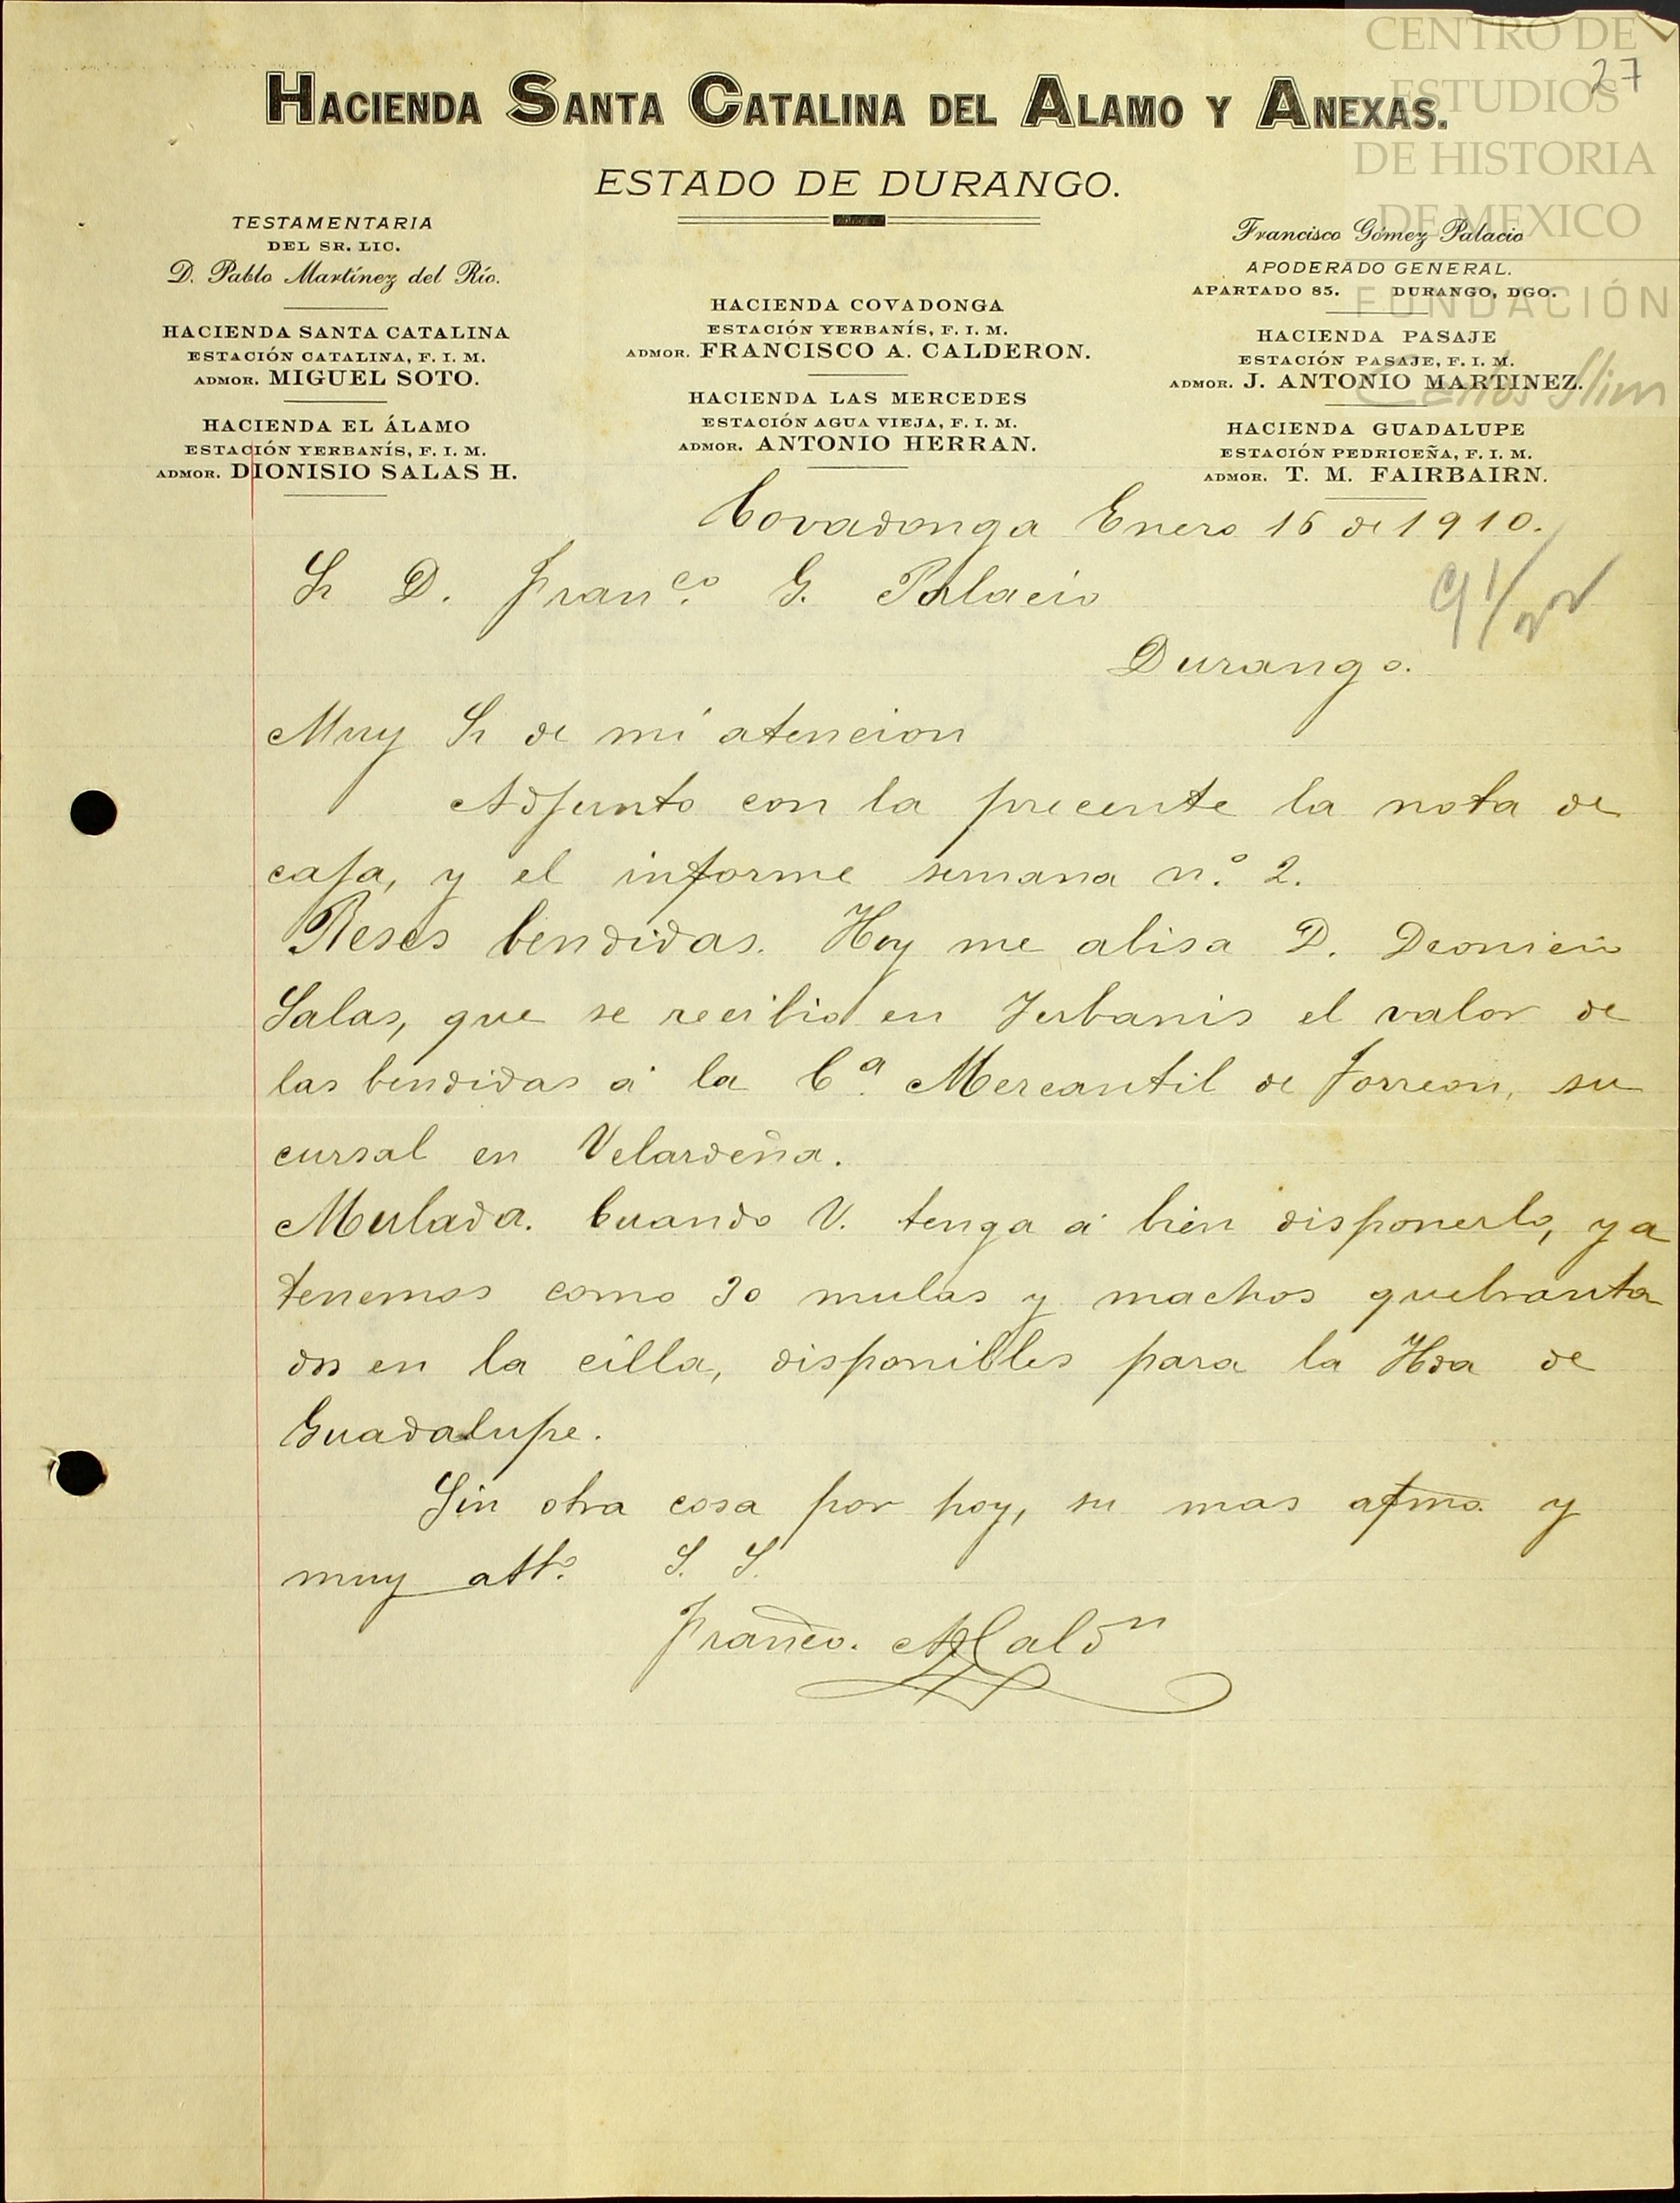 CENTRO DE
ESTUDIOS
DE HISTORIA
DE MEXICO
FUNDACIÓN
Carlos Slim
27
HACIENDA SANTA CATALINA DEL ALAMO Y ANEXAS.
ESTADO DE DURANGO.
TESTAMENTARIA
DEL SR. LIC.
D. Pablo Martínez del Río.
HACIENDA SANTA CATALINA
ESTACIÓN CATALINA, F. I. M.
ADMOR. MIGUEL SOTO.
HACIENDA EL ÁLAMO
ESTACIÓN YERBANÍS, F. I. M.
ADMOR. DIONISIO SALAS H.
HACIENDA COVADONGA
ESTACIÓN YERBANÍS, F. I. M.
ADMOR. FRANCISCO A. CALDERON.
HACIENDA LAS MERCEDES
ESTACIÓN AGUA VIEJA, F. I. M.
ADMOR. ANTONIO HERRAN.
Francisco Gómez Palacio
APODERADO GENERAL.
APARTADO 85. DURANGO, DGO.
HACIENDA PASAJE
ESTACIÓN PASAJE, F. I. M.
ADMOR. J. ANTONIO MARTINEZ.
HACIENDA GUADALUPE
ESTACIÓN PEDRICEÑA, F. I. M.
ADMOR. T. M. FAIRBAIRN.
Covadonga Enero 16 de 1910.
Sr D. Franco. G. Palacio
Durango.
Muy Sr de mi atencion
Adjunto con la precente la nota de
caja, y el informe semana n.º 2.
Reses bendidas. Hoy me abisa D. Deonicio
Salas, que se recibio en Yerbanis el valor de
las bendidas á la Cª. Mercantil de Torreon, su
cursal en Velardeña.
Mulada. Cuando V. tenga á bien disponerlo, ya
tenemos como 30 mulas y machos quebranta
dos en la cilla, disponibles para la Hda de
Guadalupe.
Sin otra cosa por hoy, su mas afmo. y
muy atto. S. S.
Franco. A Caldn